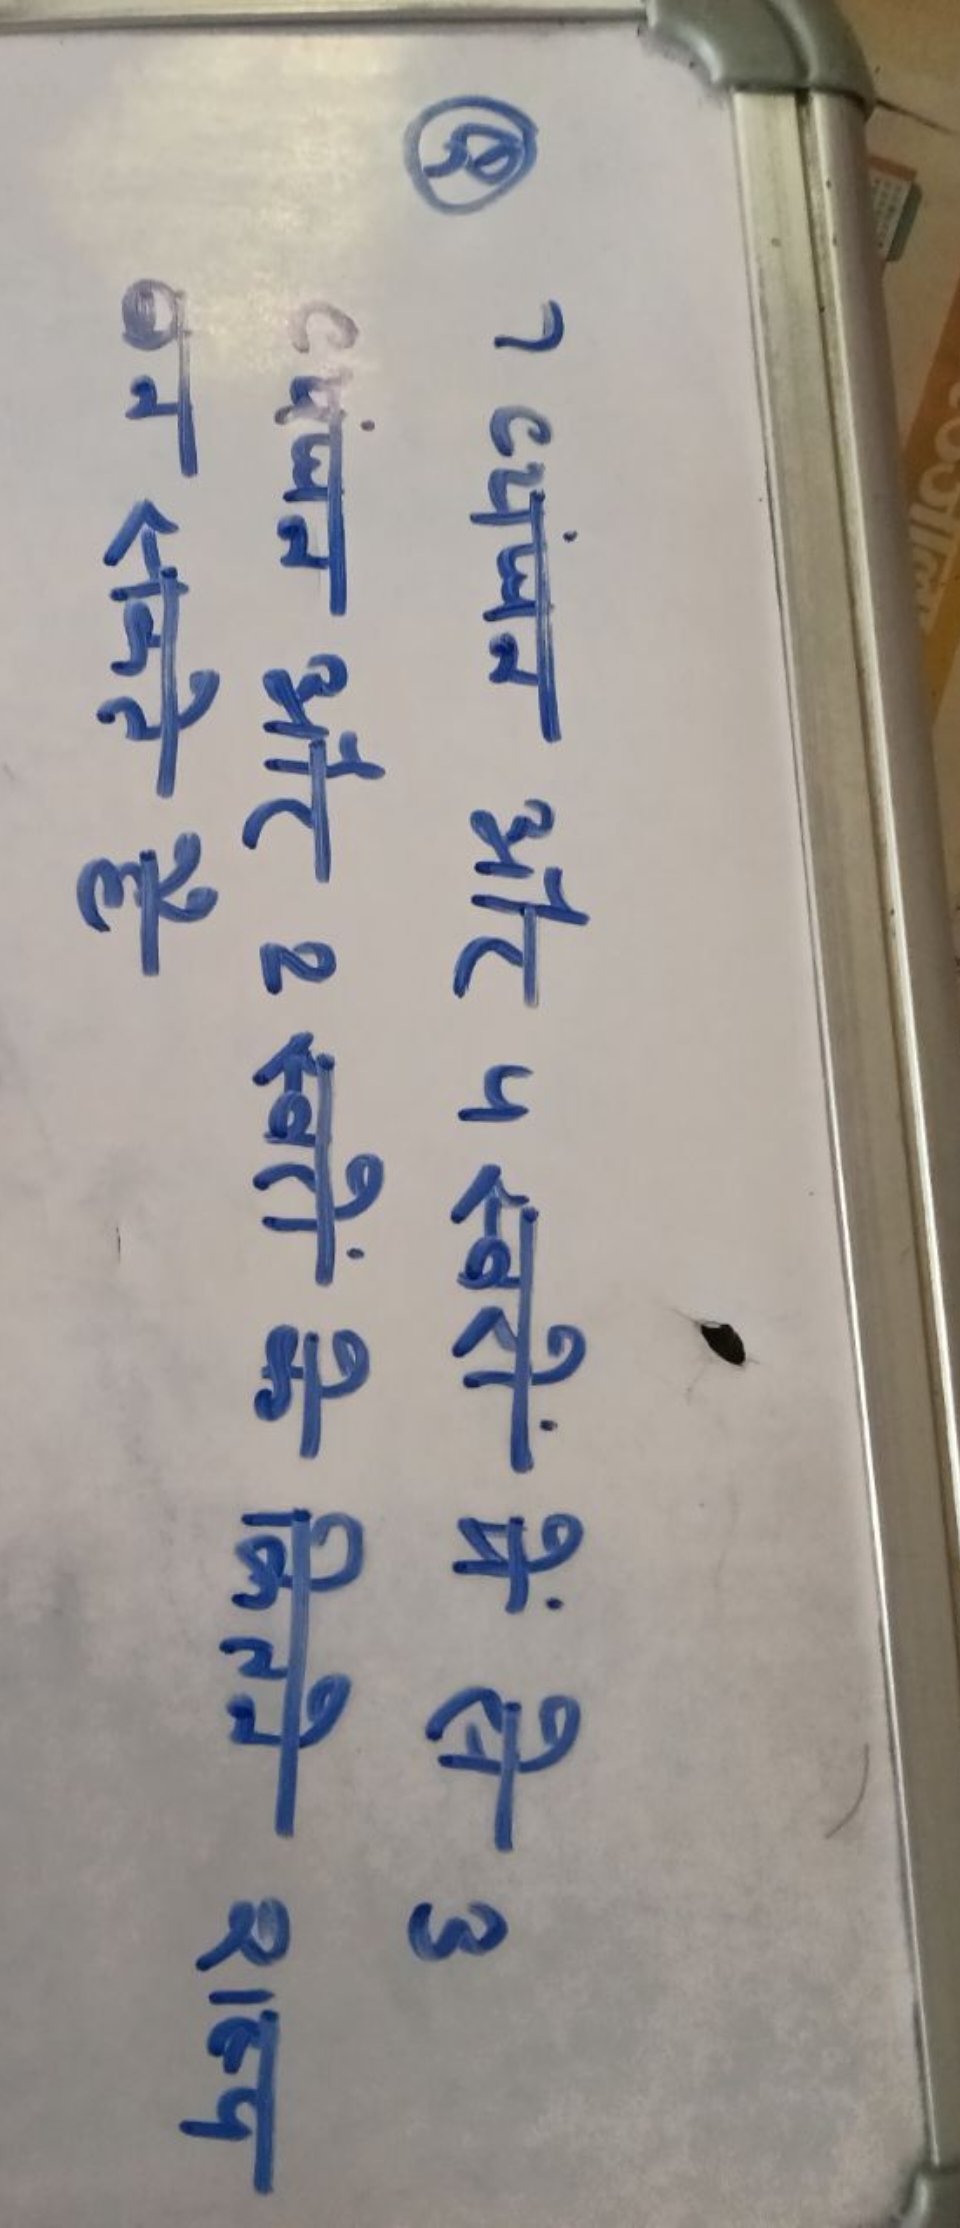 (ए) 7 व्यंजन और 4 स्वरों में से 3
व्यंजन और 2 स्वरों के कितने शब्द
बन सकते है